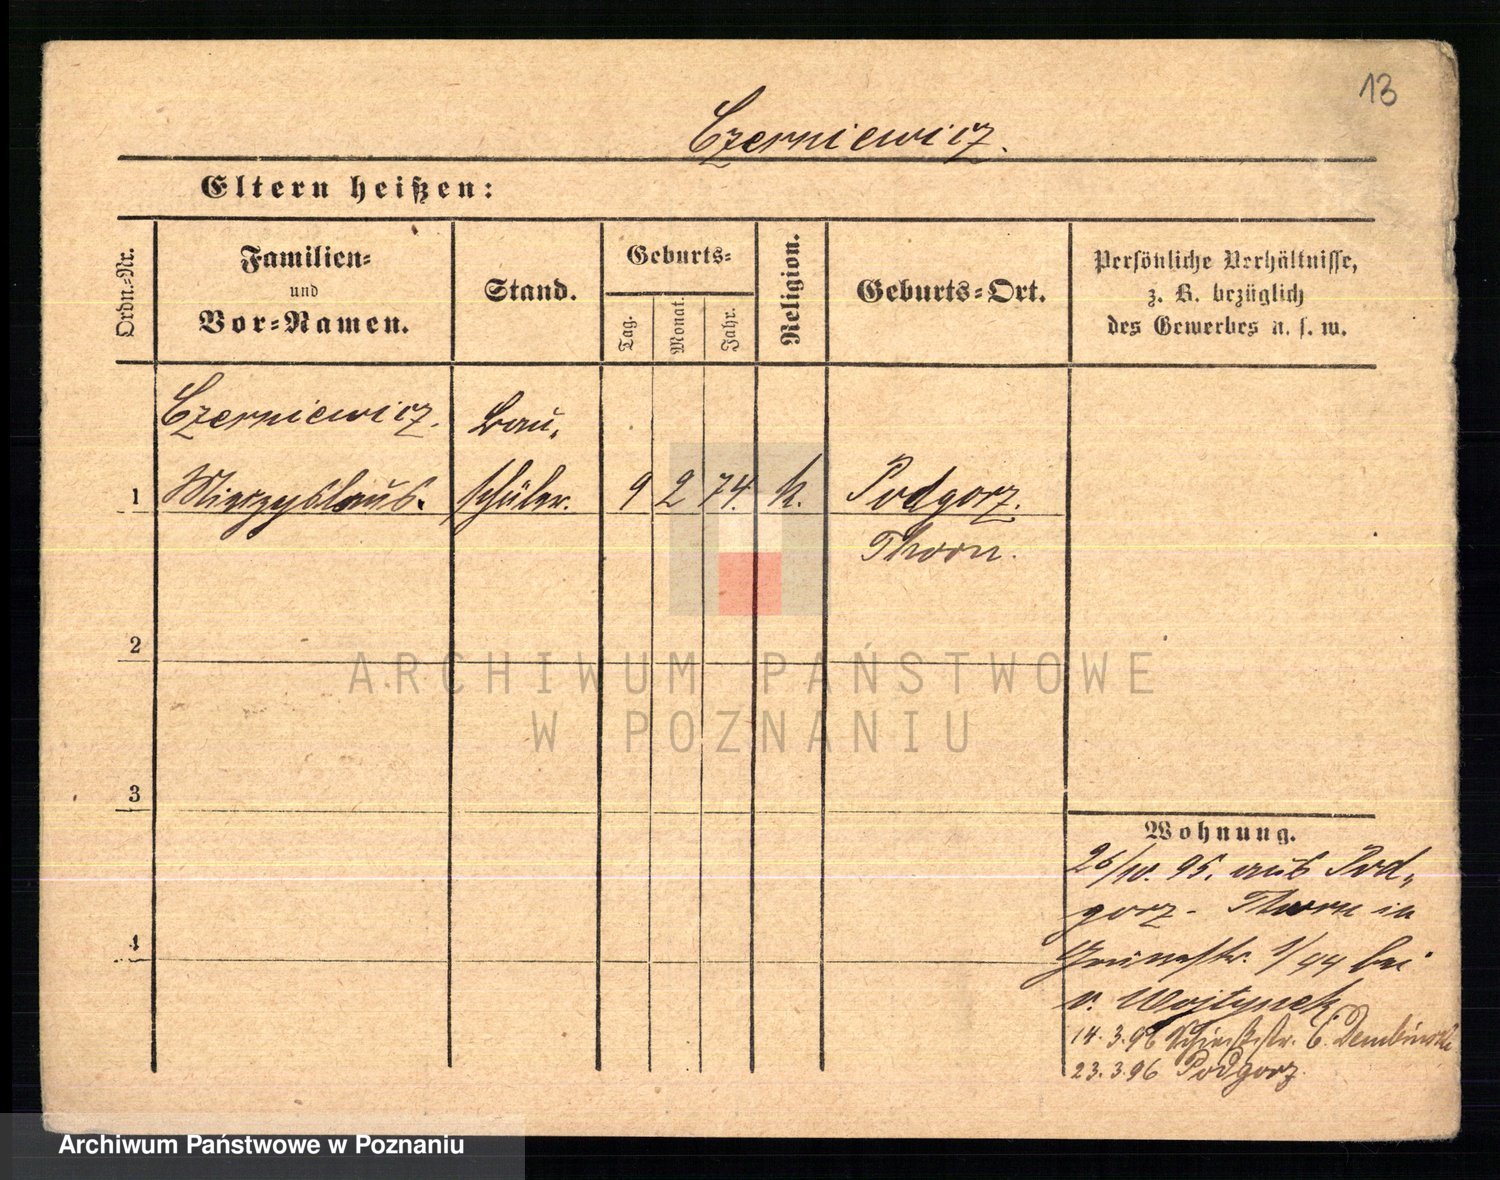 13
Czerniewicz.
Eltern heißen:
Ordn.-Nr.
Familien-
und
Vor-Namen.
Stand.
Geburts-
Tag.
Monat.
Jahr.
Religion.
Geburts-Ort.
Persönliche Verhältnisse,
z. B. bezüglich
des Gewerbes u. s. w.
Czerniewicz. Bau-
1 Mieczyslaus. schüler. 9 2 74. k. Podgorz.
Thorn.
2
3
4
Wohnung.
26/10. 95. aus Pod-
gorz - Thorn in
Grünestr. 1/44 bei
v. Wojtynek
14.3.96 Dembinski
23.3.96 Podgorz.
ARCHIWUM PAŃSTWOWE
W POZNANIU
Archiwum Państwowe w Poznaniu